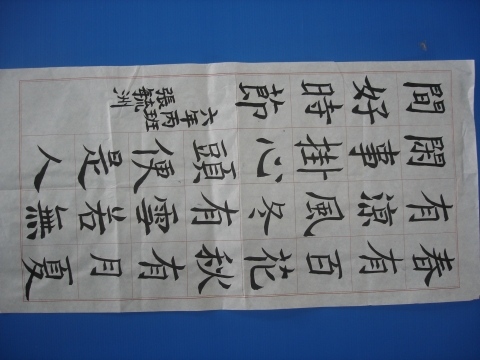 春有百花秋有月夏
有涼風冬有雪若無
閑事掛心頭便是人
間好時節
六年丙班
張毓洲